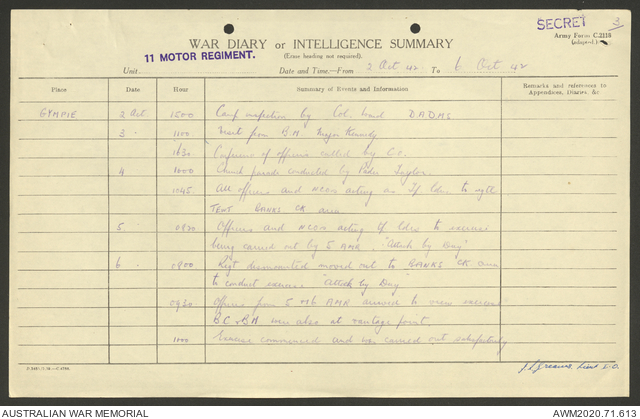 SECRET 3
Army Form C.2118
(adapted.)
WAR DIARY or INTELLIGENCE SUMMARY
(Erase heading not required).
11 MOTOR REGIMENT.
Unit Date and Time—From 2 Oct 42 To 6 Oct 42
Place Date Hour Summary of Events and Information Remarks and references to Appendices, Diaries, &c
GYMPIE 2 Oct 1500 Camp inspection by Col. D.A.D.M.S
3 1100 Visit from B.M. Major Kennedy
1630 Conference of officers called by C.O.
4 1000 Church parade conducted by Padre Taylor.
1045 All officers and NCOs acting as Tp Ldrs to
TEWT BANKS CK area
5 0830 Officers and NCOs acting Tp Ldrs to exercise
being carried out by 5 AMR. "Attack by Day"
6 0900 Regt dismounted moved out to BANKS CK area
to conduct exercise "Attack by Day"
0930 Officers from 5 AMR arrived to view exercise
BC & BM were also at vantage point
1000 Exercise commenced and was carried out satisfactorily
Lieut I.O.
AUSTRALIAN WAR MEMORIAL AWM2020.71.613